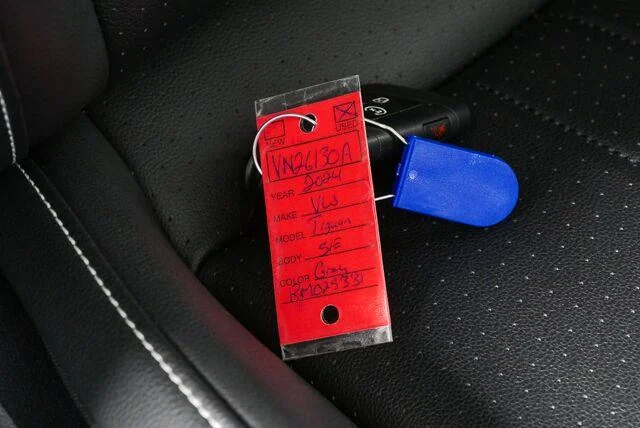 NEW USED
VN26130A
YEAR 2024
MAKE VW
MODEL Tiguan
BODY S/E
COLOR Gray
RM023331